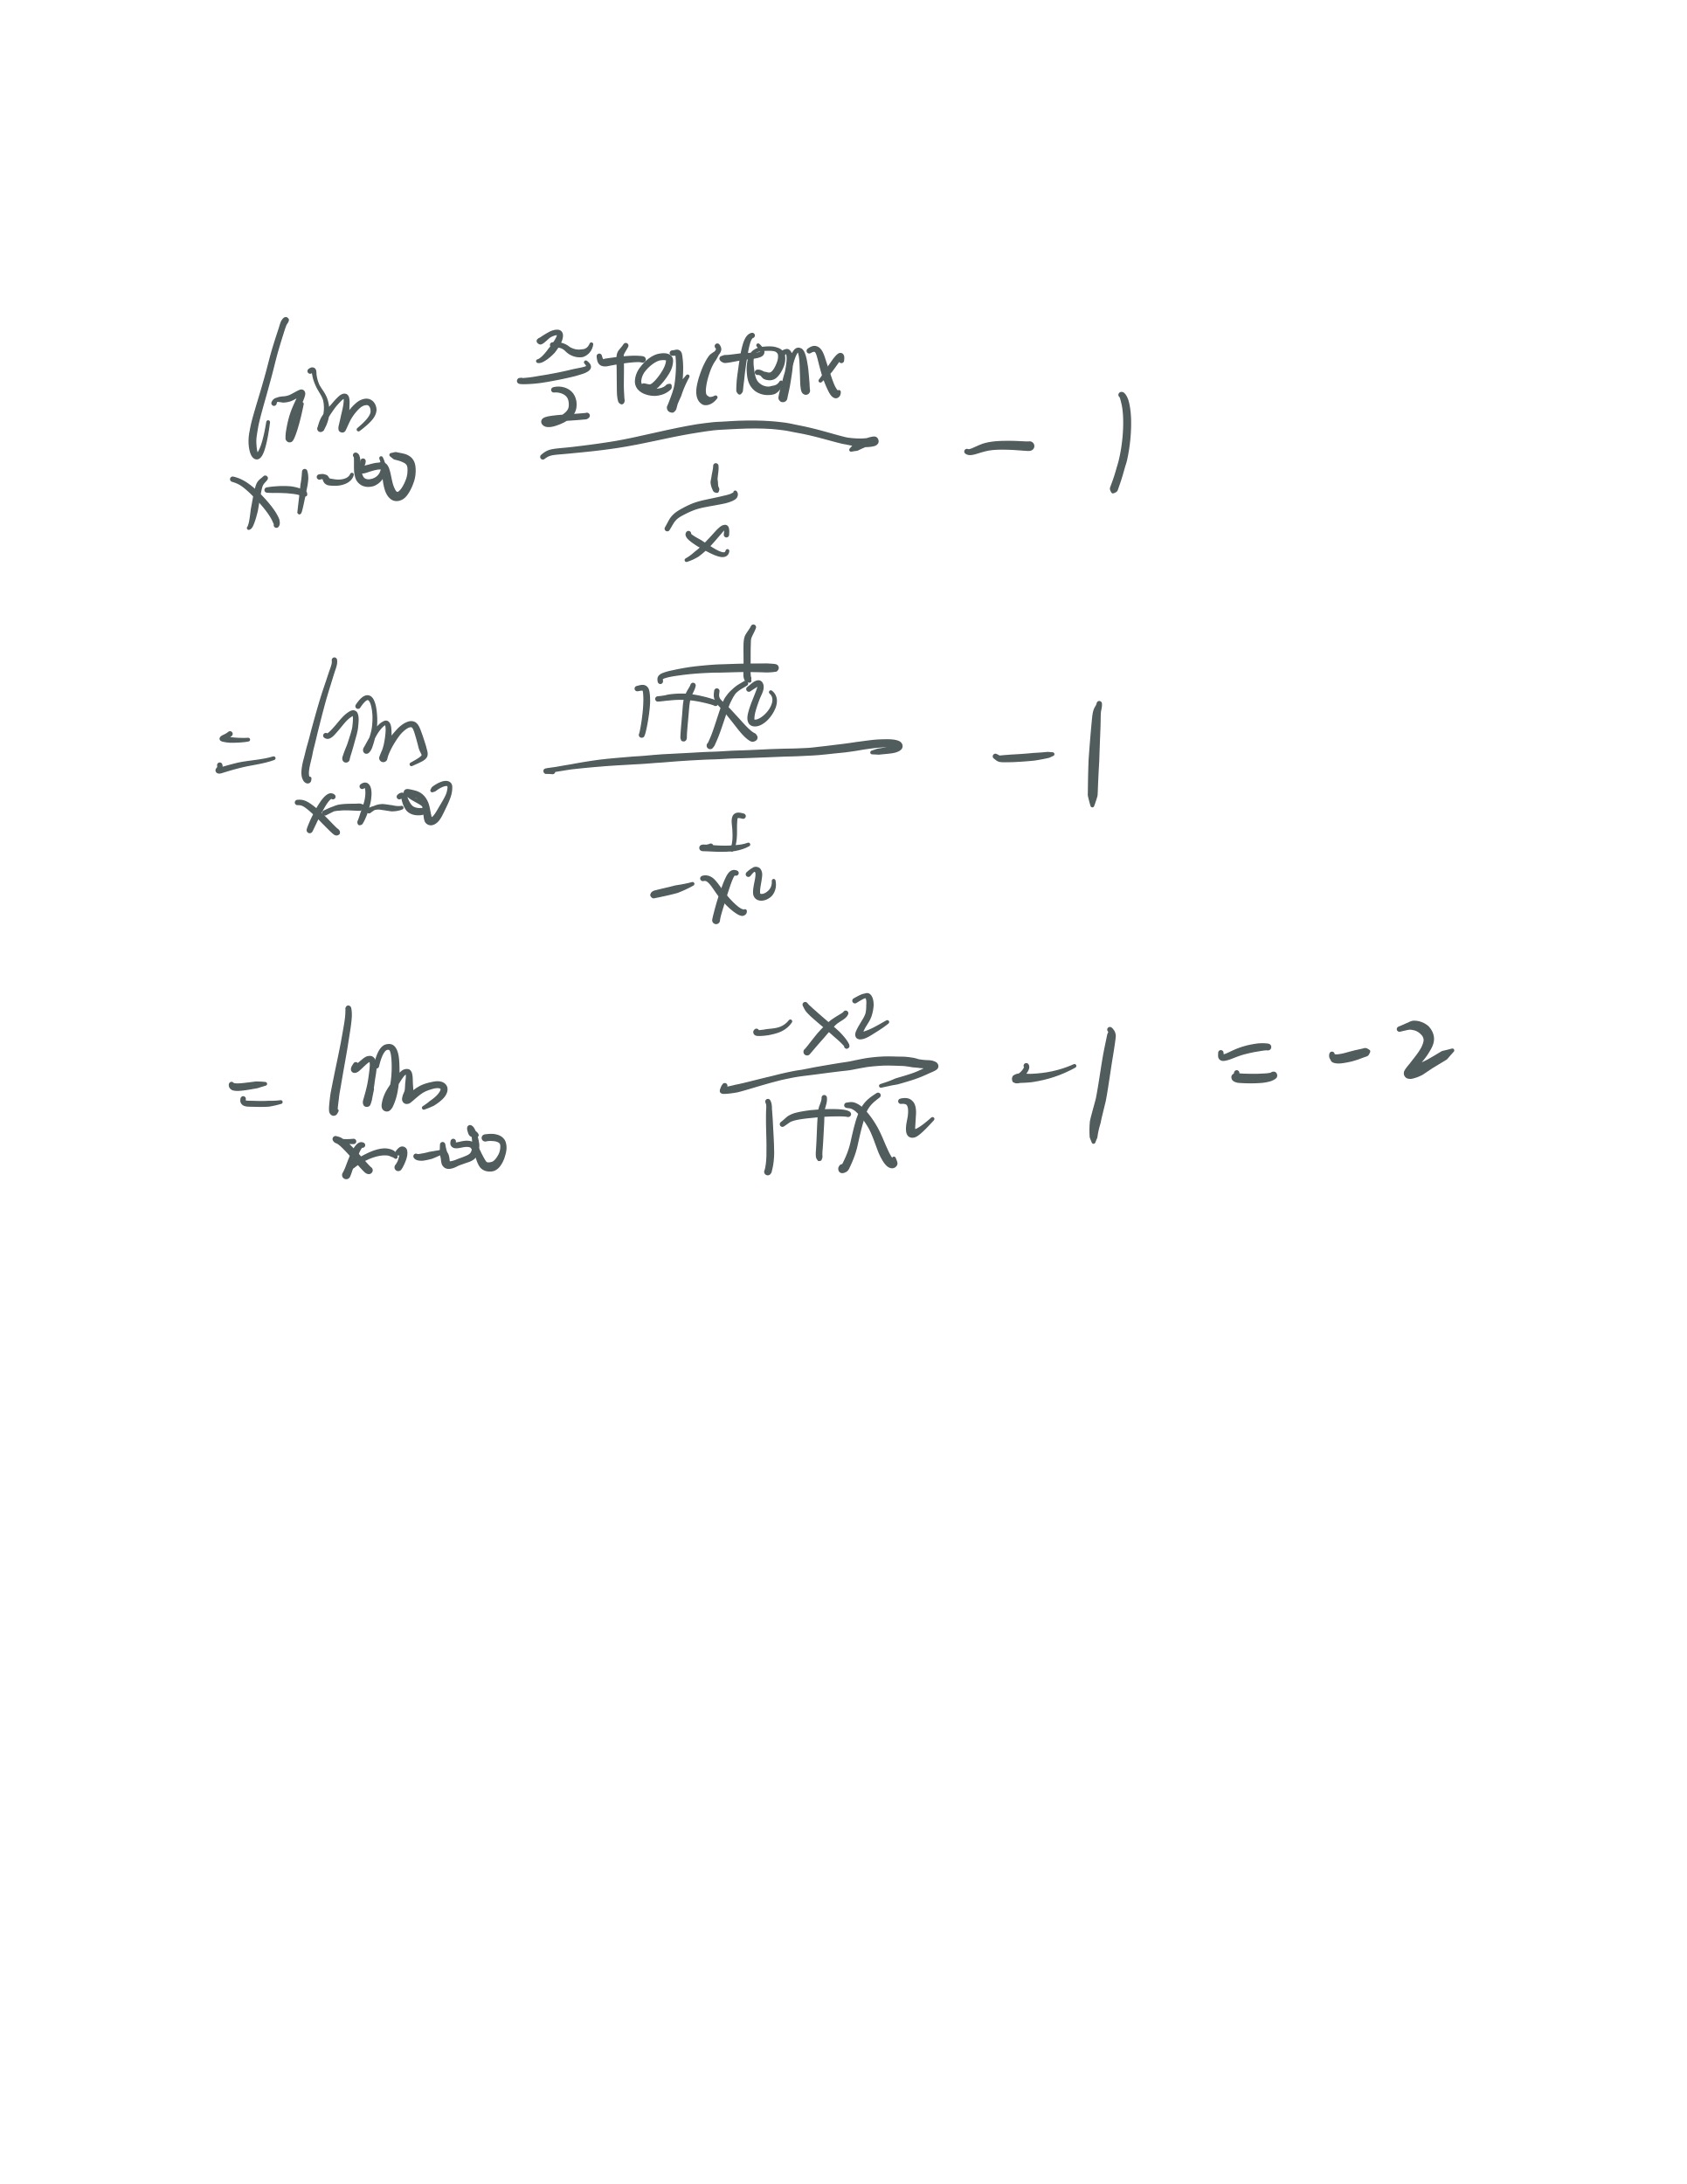 lim x→-∞ (π/2 + arctan x)/(1/x) - 1
= lim x→-∞ (1/(1+x²))/(1/(-x²)) - 1
= lim x→-∞ -x²/(1+x²) - 1 = -2